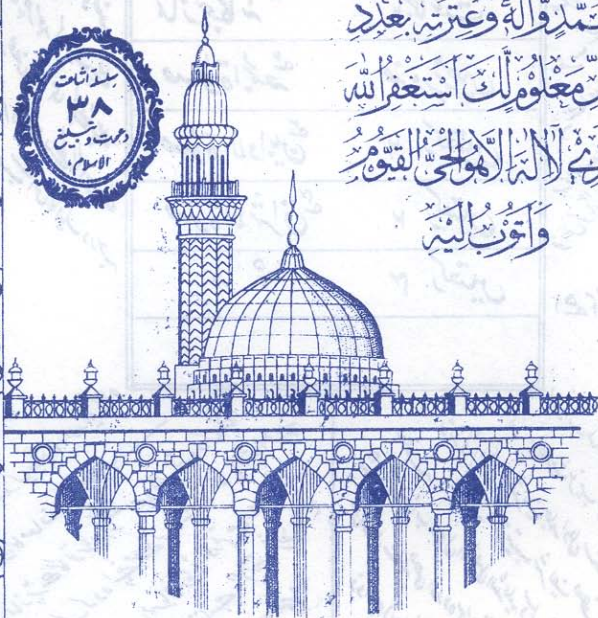 سلسلہ اشاعت
۳۸
دعوت و تبلیغ
الاسلام
مُحَمَّدٍ وَّاٰلِهٖ وَعِتْرَتِهٖ بِعَدَدِ
مَعْلُوْمٍ لَّكَ اَسْتَغْفِرُ اللّٰهَ
لَآ اِلٰهَ اِلَّا هُوَ الْحَىُّ الْقَيُّوْمُ
وَاَتُوْبُ اِلَيْهِ